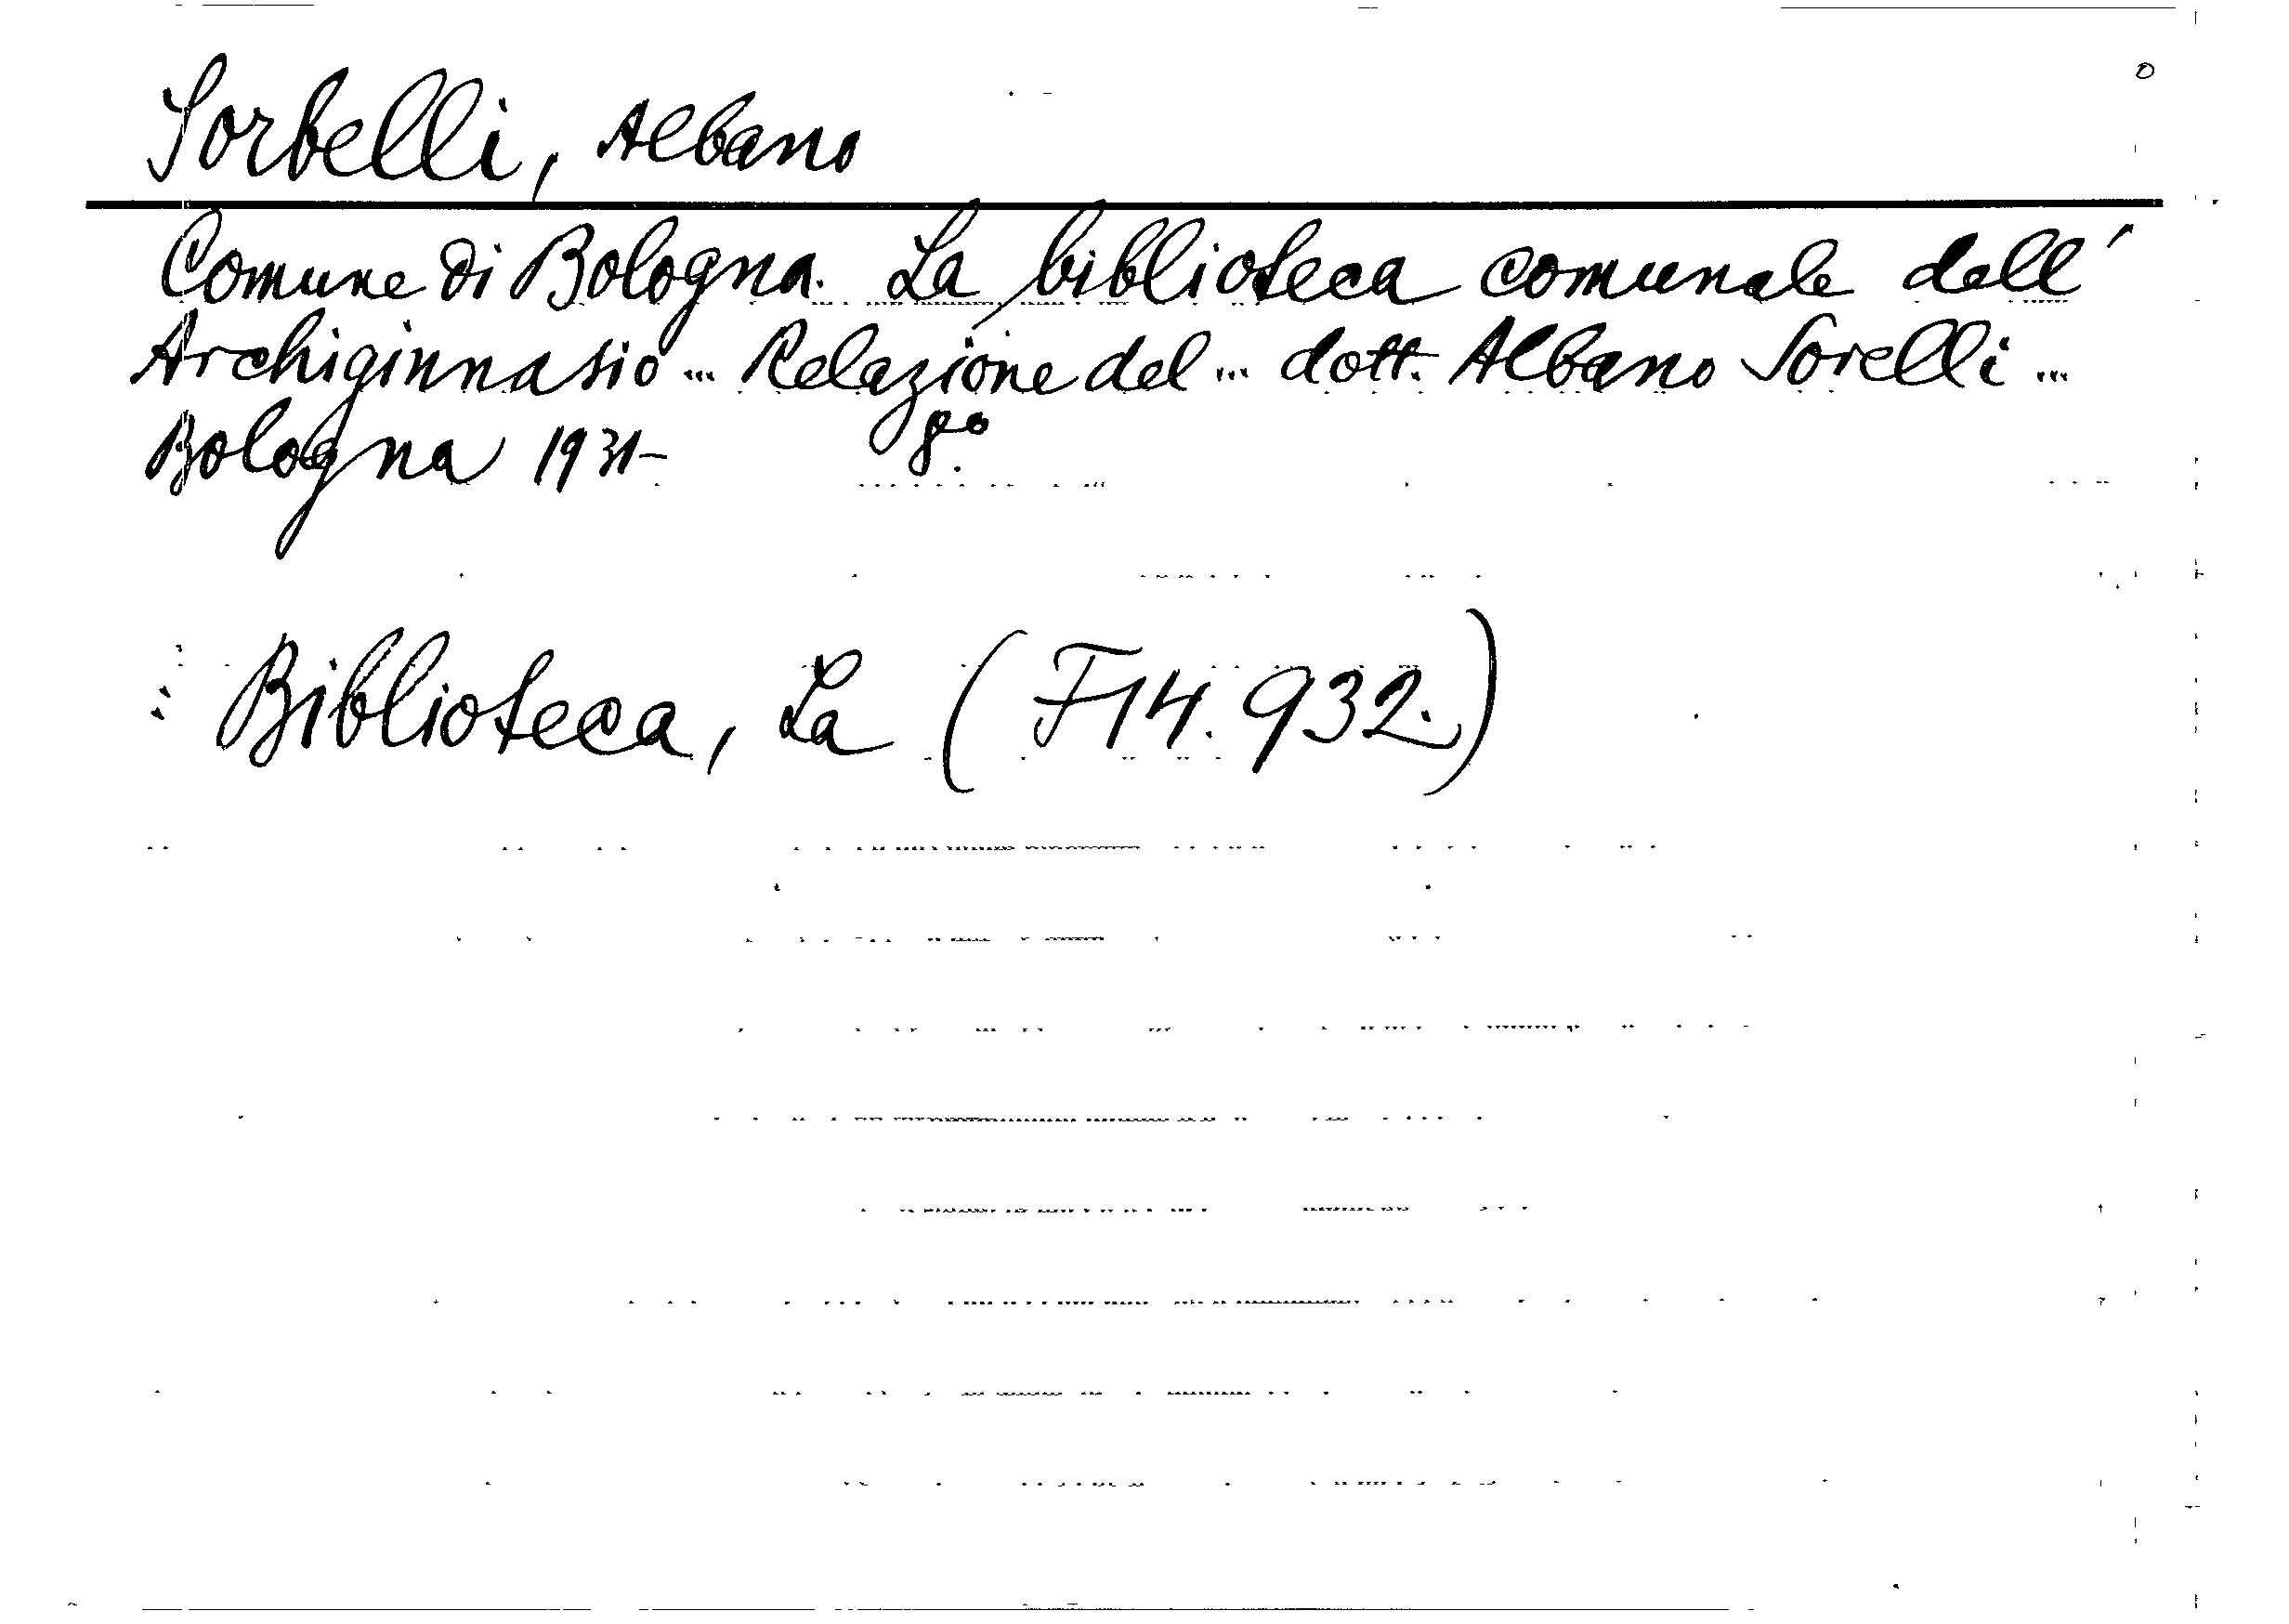 Sorbelli, Albano
Comune di Bologna. La biblioteca comunale dell'
Archiginnasio ... Relazione del ... dott. Albano Sorelli ...
Bologna 1931- 8º.
Biblioteca, La (F14.932.)